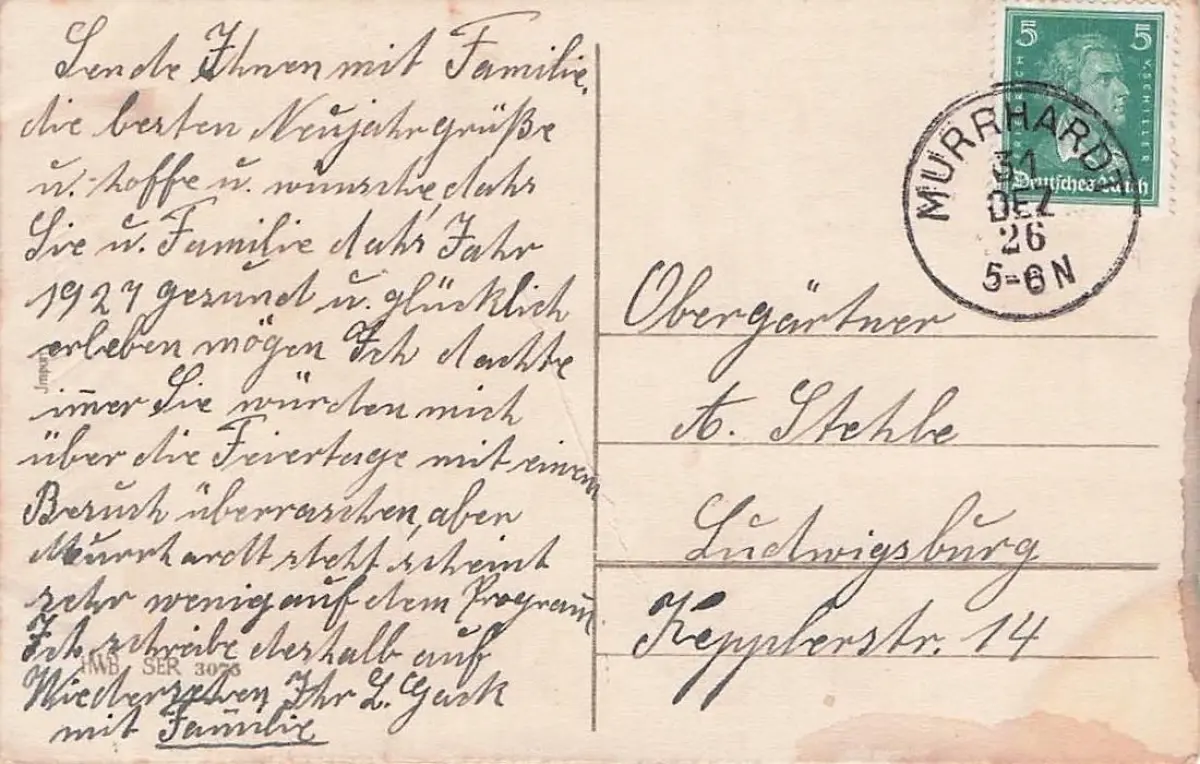 Sende Ihnen mit Familie,
die besten Neujahrgrüße
u. hoffe u. wünsche, dahs
Sie u. Familie dahs Jahr
1927 gesund u. glücklich
erleben mögen Ich dachte
im̅er Sie würden mich
über die Feiertage mit einem
Besuch überraschen, aber
Murrhardt steht scheint
sehr wenig auf dem Program̅
Ich schreibe deshalb auf
Wiedersehen Ihr L. Gack
mit Familie
HWB SER 3075
5 5
Deutsches Reich
MURRHARDT
31
DEZ
26
5-6 N
Obergärtner
A. Stehle
Ludwigsburg
Kepplerstr. 14